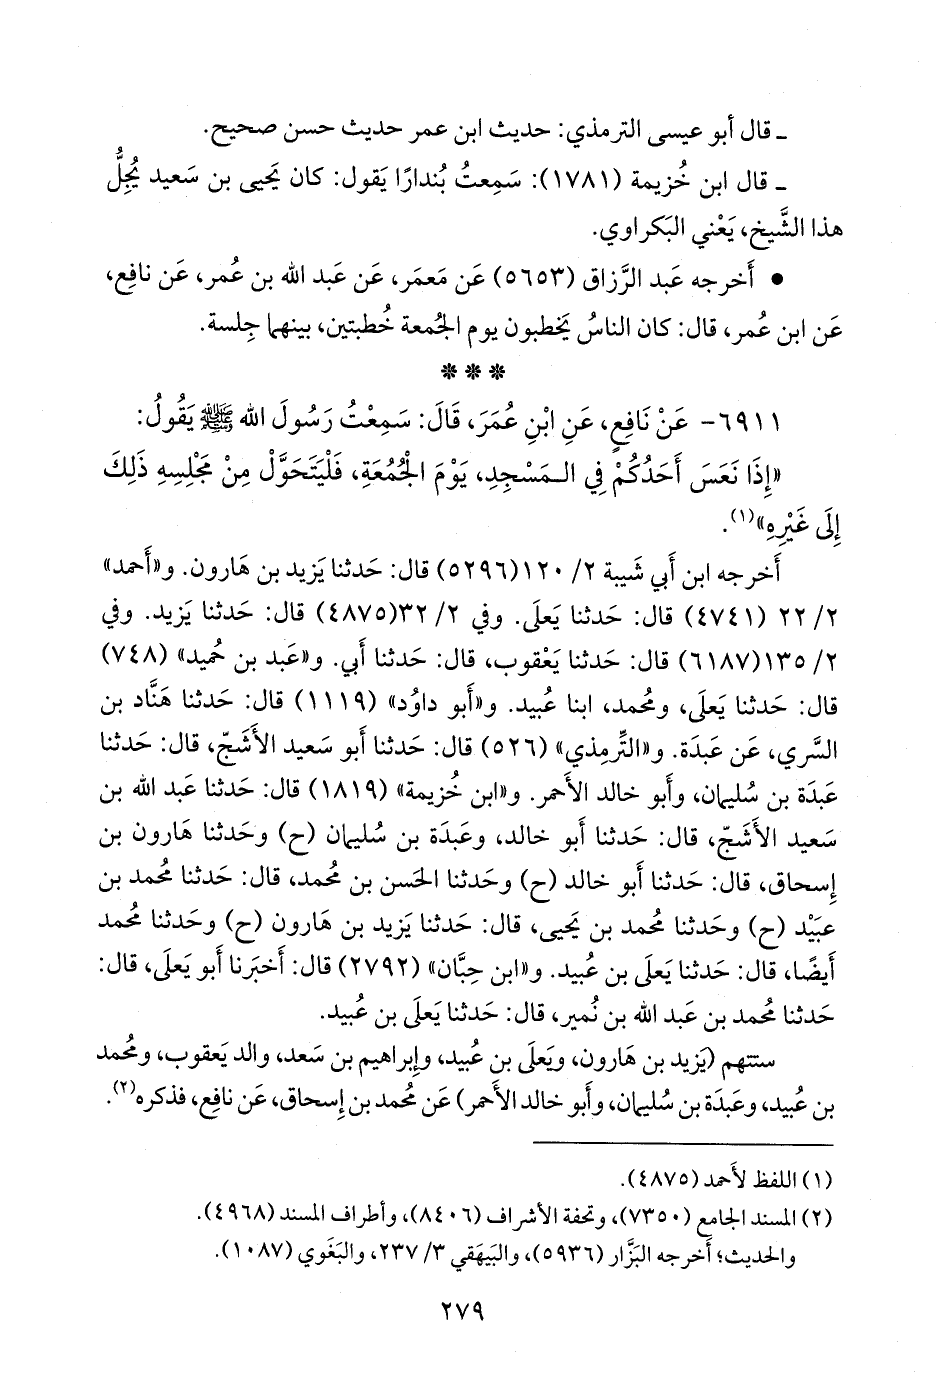 ـ قال أبو عيسى الترمذي: حديث ابن عمر حديث حسن صحيح.
ـ قال ابن خُزيمة (١٧٨١): سَمِعتُ بُندارًا يَقول: كان يَحيى بن سَعيد يُجِلُّ
هذا الشَّيخ، يَعْني البَكراوي.
• أَخرجه عَبد الرَّزاق (٥٦٥٣) عَن مَعمَر، عَن عَبد الله بن عُمر، عَن نافِع،
عَن ابن عُمر، قال: كان الناسُ يَخطبون يوم الجُمعة خُطبتين، بينهما جِلسة.
***
٦٩١١- عَنْ نَافِعٍ، عَنِ ابْنِ عُمَرَ، قَالَ: سَمِعْتُ رَسُولَ الله ﷺ يَقُولُ:
«إِذَا نَعَسَ أَحَدُكُمْ فِي الـمَسْجِدِ، يَوْمَ الْجُمُعَةِ، فَلْيَتَحَوَّلْ مِنْ مَجْلِسِهِ ذَلِكَ
إِلَى غَيْرِهِ»(١).
أَخرجه ابن أَبي شَيبة ٢/ ١٢٠(٥٢٩٦) قال: حَدثنا يَزيد بن هَارون. و«أَحمد»
٢/ ٢٢ (٤٧٤١) قال: حَدثنا يَعلَى. وفي ٢/ ٣٢(٤٨٧٥) قال: حَدثنا يَزيد. وفي
٢/ ١٣٥(٦١٨٧) قال: حَدثنا يَعْقوب، قال: حَدثنا أَبي. و«عَبد بن حُميد» (٧٤٨)
قال: حَدثنا يَعلَى، ومُحمد، ابنا عُبيد. و«أَبو داوُد» (١١١٩) قال: حَدثنا هَنَّاد بن
السَّري، عَن عَبدَة. و«التِّرمِذي» (٥٢٦) قال: حَدثنا أَبو سَعيد الأَشَجّ، قال: حَدثنا
عَبدَة بن سُليمان، وأَبو خالد الأَحمر. و«ابن خُزيمة» (١٨١٩) قال: حَدثنا عَبد الله بن
سَعيد الأَشَجّ، قال: حَدثنا أَبو خالد، وعَبدَة بن سُليمان (ح) وحَدثنا هَارون بن
إِسحاق، قال: حَدثنا أَبو خالد (ح) وحَدثنا الحَسن بن مُحمد، قال: حَدثنا مُحمد بن
عبَيْد (ح) وحَدثنا مُحمد بن يَحيى، قال: حَدثنا يَزيد بن هَارون (ح) وحَدثنا مُحمد
أَيضًا، قال: حَدثنا يَعلَى بن عُبيد. و«ابن حِبَّان» (٢٧٩٢) قال: أَخبَرنا أَبو يَعلَى، قال:
حَدثنا مُحمد بن عَبد الله بن نُمير، قال: حَدثنا يَعلَى بن عُبيد.
ستتهم (يَزيد بن هَارون، ويَعلَى بن عُبيد، وإِبراهيم بن سَعد، والد يَعقوب، ومُحمد
بن عُبيد، وعَبدَة بن سُليمان، وأَبو خالد الأَحمر) عَن مُحمد بن إِسحاق، عَن نافِع، فذكره(٢).
(١) اللفظ لأَحمد (٤٨٧٥).
(٢) المسند الجامع (٧٣٥٠)، وتحفة الأشراف (٨٤٠٦)، وأطراف المسند (٤٩٦٨).
والحديث؛ أَخرجه البَزَّار (٥٩٣٦)، والبَيهَقي ٣/ ٢٣٧، والبَغَوي (١٠٨٧).
٢٧٩